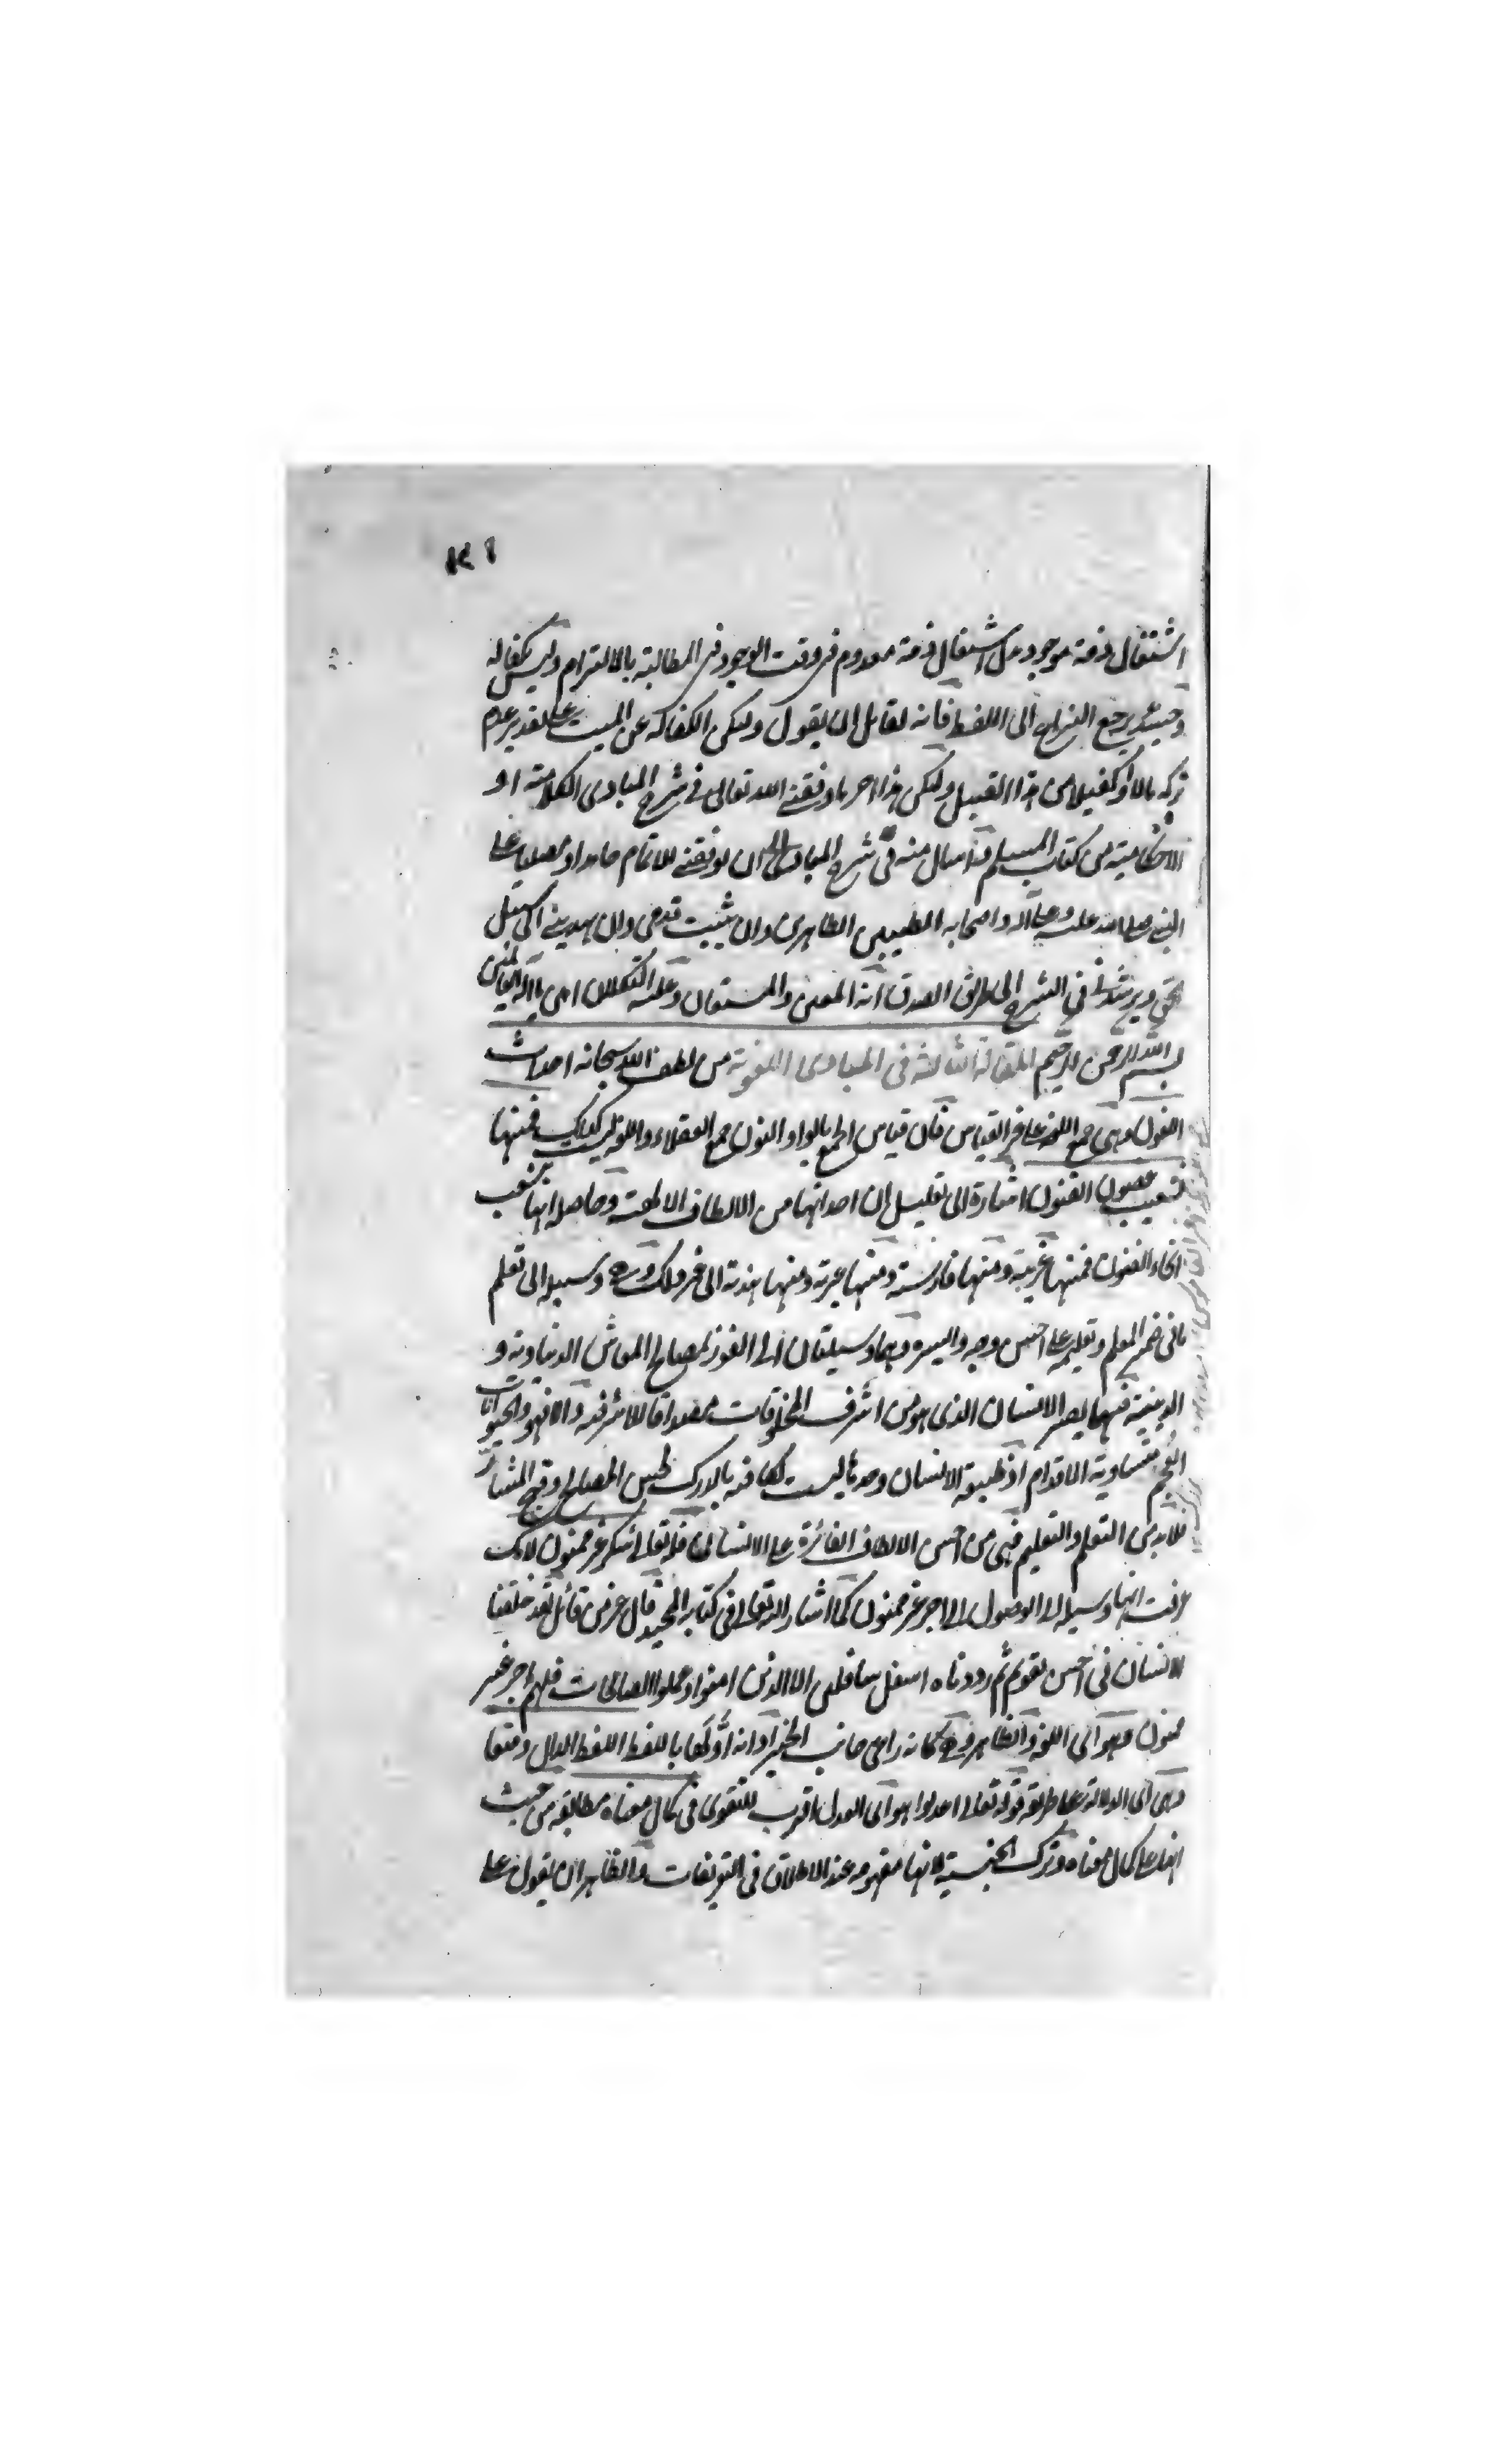 اشتغال ذمة موجود مثل اشتغال ذمة معدوم في وقت الوجود في المطالبة بالالتزام وليس كفاله
وحينئذ يرجع النزاع الى اللفظ فانه لقائل ان يقول وليكن الكفالة عن الميت على تقدير عدم
تركه مالا او كفيلا من هذا القبيل وليكن هذا اخر ما وفقني الله تعالى في شرح المبادي الكلامية او
الاحكامية من كتاب المسلم منه في شرح ان يوفقني للاتمام حامدا ومصليا على
النبي صلى الله عليه وعلى آله واصحابه الطيبين الطاهرين وان يثبت قدمي وان يهديني الى سبيل
الحق ويرشدني في الشرح الى طريق الصدق انه المعين والمستعان وعليه التكلان امين يا اله العالمين
بسم الله الرحمن الرحيم المقالة الثالثة في المبادي اللغوية من لطف الله سبحانه احداث
اللغون وهي جمع اللغة على غير القياس فان قياس الجمع بالواو والنون جمع العقلاء واللغة ليست كذلك فمنها
تشعيب الفنون اشارة الى تعليل ان احداثها من الالطاف الالهية وحاصله انها تشعب
انحاء الفنون فمنها عربية ومنها فارسية ومنها عبرية ومنها هندية الى غير ذلك وسيله الى تعلم
ما في ضمير المعلم وتعليمه على احسن وجه وايسره وهما وسيلتان الى الفوز لمصالح المعاش الدنياوية و
الدينية فبها يصير الانسان الذي هو من اشرف المخلوقات مصداقا للاشرفية والا فهو والحيوانات
العجم متساوية الاقدام اذ طبيعة الانسان وحدها ليست بكافية بالدرك لحسن المصالح وقبح
فلا بد من التعلم والتعليم فهي من احسن الالطاف الفائزة على الانسان فلله تعالى شكر غير ممنون لانك
عرفت انها وسيلة الى الوصول الى اجر غير ممنون كما اشار الله تعالى في كتابه المجيد قال عز من قائل لقد خلقنا
الانسان في احسن تقويم ثم رددناه اسفل سافلين الا الذين امنوا وعملوا الصالحات فلهم اجر غير
ممنون وهو اي اللغة والظاهر وهي كانه راعى جانب الخبر او انه اولها باللفظ اللفظ الدال وضعا
وهي اي الدلالة على طريقة قوله تعالى اعدلوا هو اي العدل اقرب للتقوى في كمال معناه مطابقة من حيث
انها على كمال معناه وترك الحيثية لانها مفهومه عند الاطلاق في التعريفات والظاهر ان يقول على